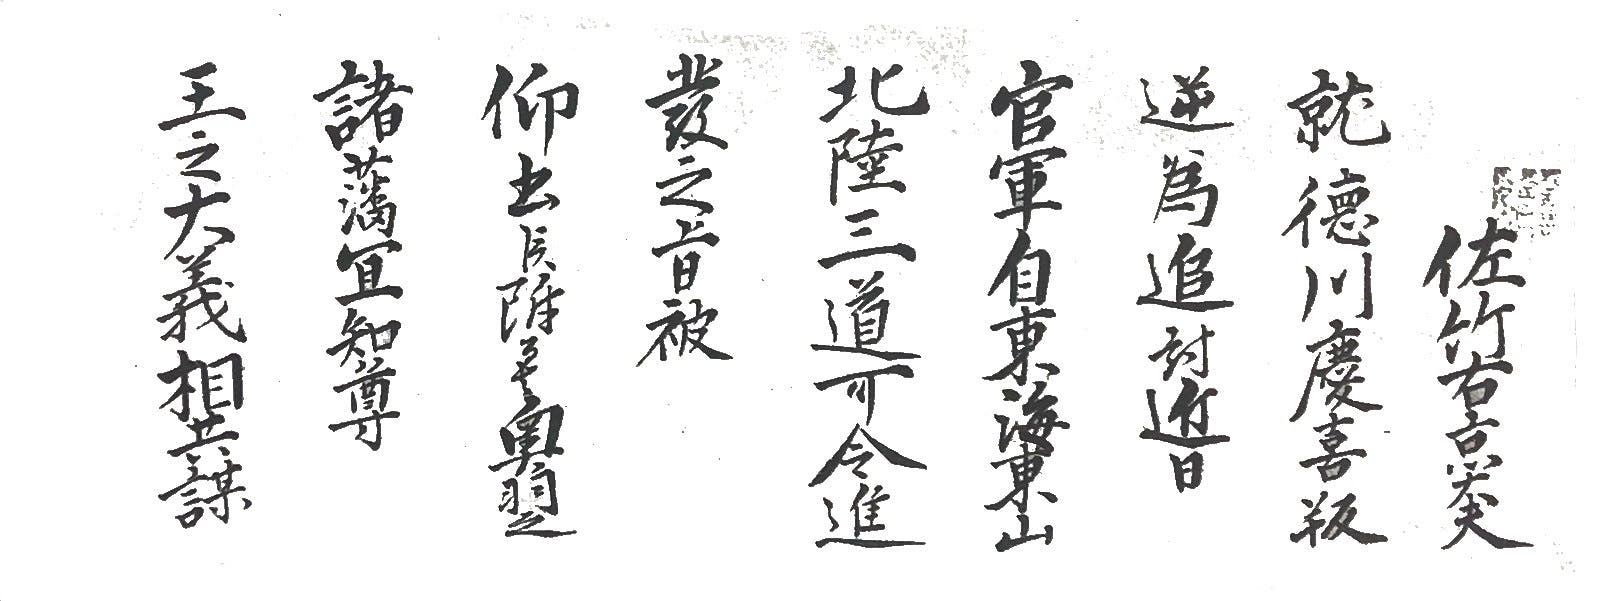 佐竹右京大夫
就徳川慶喜叛
逆為追討近日
官軍自東海東山
北陸三道可令進
發之旨被
仰出候 奥羽之
諸藩宜知尊
王之大義相共謀